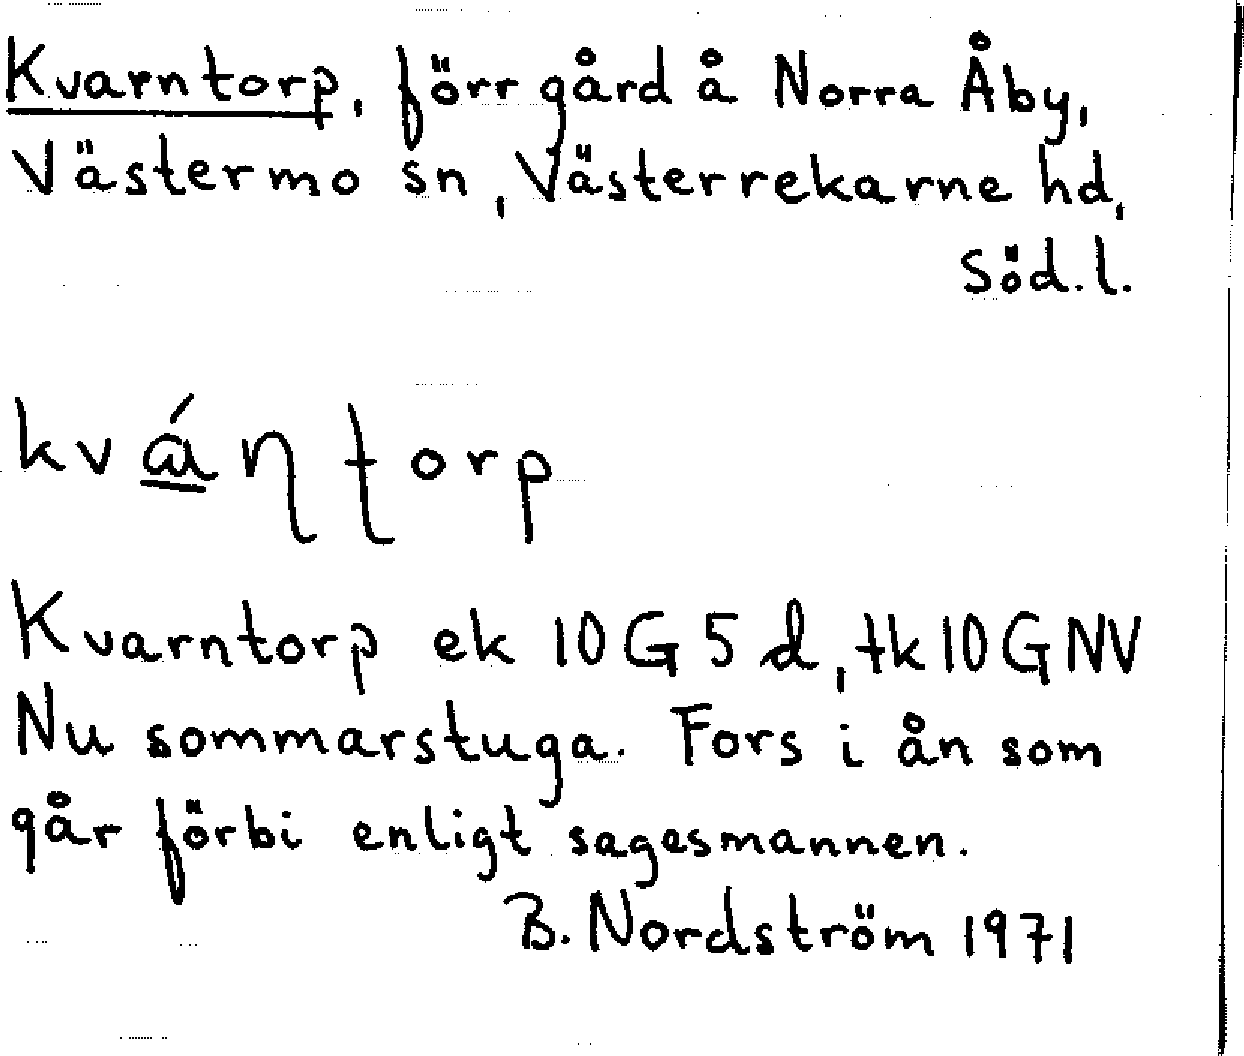 Kvarntorp, förr gård å Norra Åby,
Västermo sn, Västerrekarne hd,
Söd.l.
kvá̱ɳʈorp
Kvarntorp ek 10G 5 d, tk 10 G NV
Nu sommarstuga. Fors i ån som
går förbi enligt sagesmannen.
B. Nordström 1971